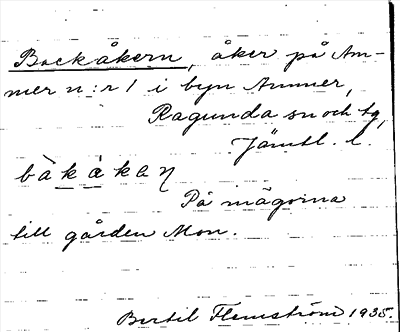 Backåkern, åker på Am-
mer n:r 1 i byn Ammer,
Ragunda sn och tg,
Jämtl. l.
bàkàkaɳ
På mägorna
till gården Mon.
Bertil Flemström 1935.